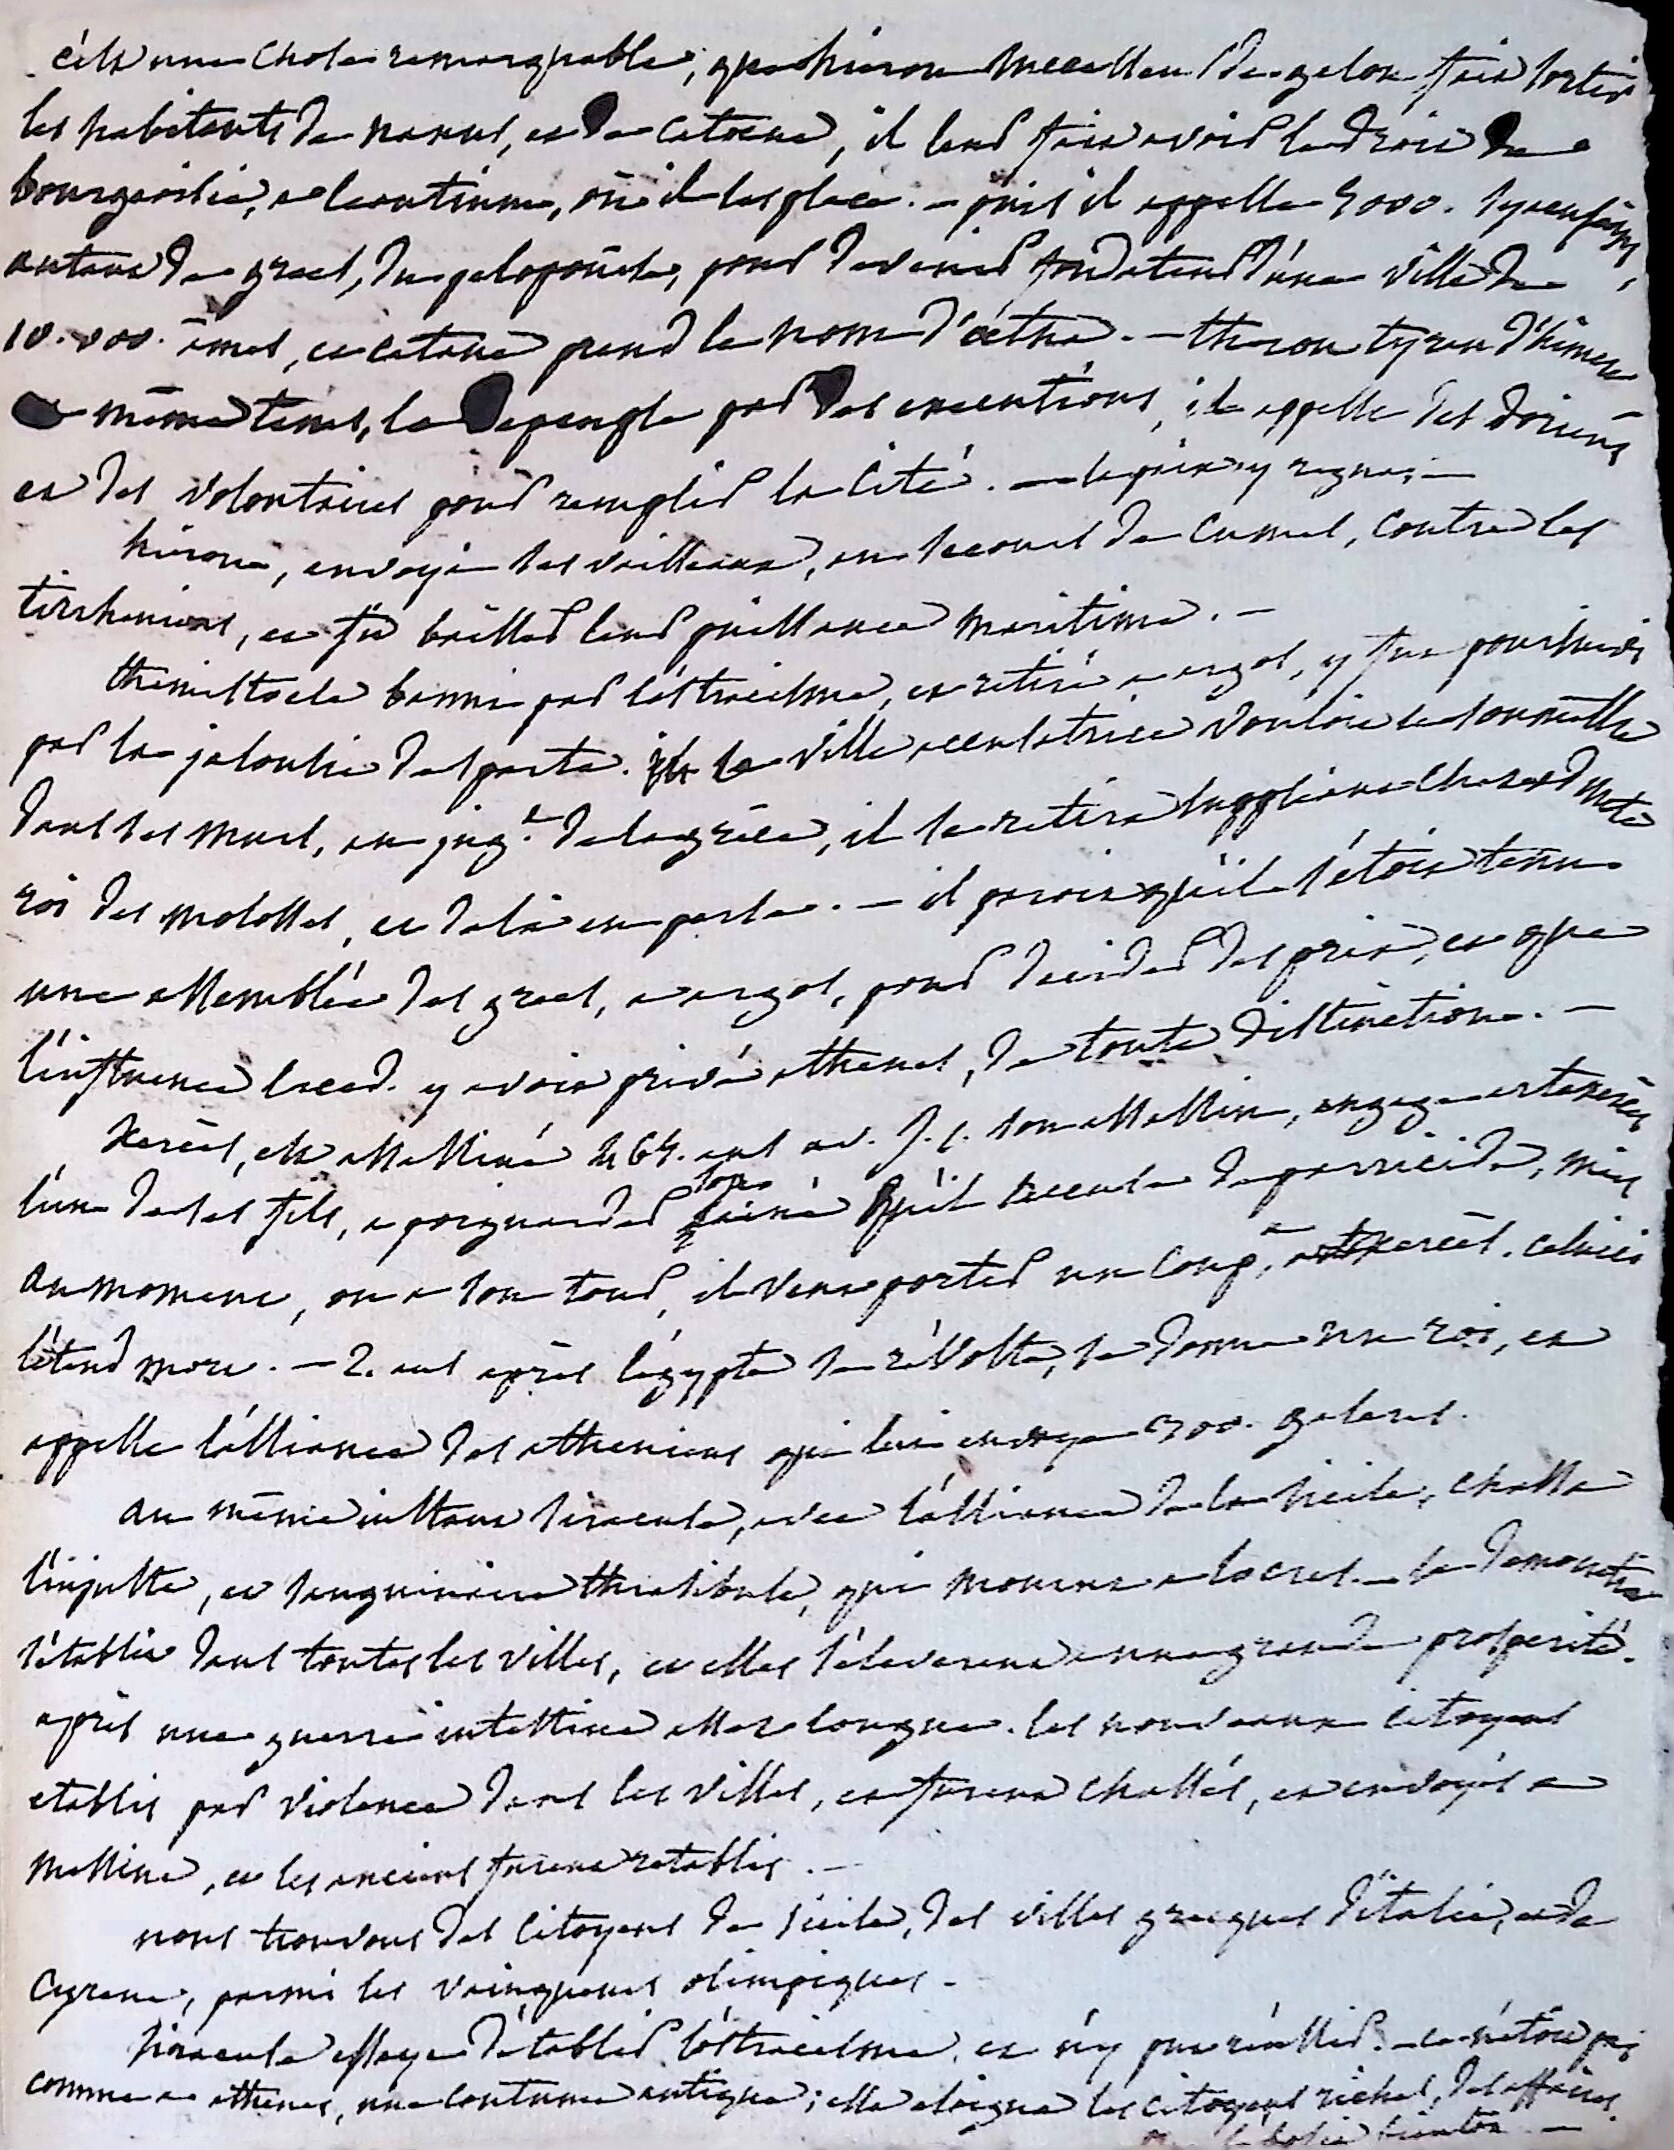 c'est une chose remarquable, que hieron successeur de gelon fait sortir
les habitants de naxus, et de catane, il leur fait avoir le droit de
bourgeoisie, a leontium, où il les place. – puis il appelle 5000. syracusains,
autant de grecs, du peloponese, pour devenir fondateurs d'une ville de
10.000. ames, et catane prend le nom d'aetna. – theron tyran d'himere
en même tems, la depeuple par des executions, il appelle des doriens
et des volontaires pour remplir la cité. – la paix y regna. –
hieron, envoya des vaisseaux, au secours de cumes, contre les
tirrheniens, et fit baisser leur puissance maritime. –
themistocle banni par l'ostracisme, et retiré a argos, y fut poursuivi
par la jalousie de sparte. la ville accusatrice vouloit le soumettre
dans ses murs, au jug.t de la grèce, il se retira suppliant chez admete
roi des molosses, et de là en perse. – il paroit qu'il s'étoit tenu
une assemblée des grecs, a argos, pour decider des prix, et que
l'influence laced. y avoit privé athenes, de toute distinction. –
Xercès, est assassiné 464. ans av. J. C. son assassin, engage artaxercès
l'un de ses fils, a poignarder son ainé qu'il accusa de parricide, mais
au moment, ou a son tour, il veut porter un coup, a artaxercès. celui ci
l'étend mort. – 2. ans après l'égypte se révolte, se donne un roi, et
appelle l'alliance des atheniens qui lui envoya 300. galeres.
au même instant siracuse, avec l'alliance de la sicile, chassa
l'injuste, et sanguinaire thrasibule, qui mourut a locres. – la democratie
s'établit dans toutes les villes, et elles s'éleverent a une grande prosperité.
après une guerre intestine assez longue. les nouveaux citoyens
etablis par violence dans les villes, en furent chassés, et envoyés a
messine, et les anciens furent retablis. –
nous trouvons des citoyens de sicile, des villes grecques d'italie, et de
Cyrene, parmi les vainqueurs olimpiques. –
siracuse essaya d'établir l'ostracisme, et n'y put réussir. – ce n'étoit pas
comme a athenes, une coutume antique; elle eloigna les citoyens riches, des affaires.
bientôt. –